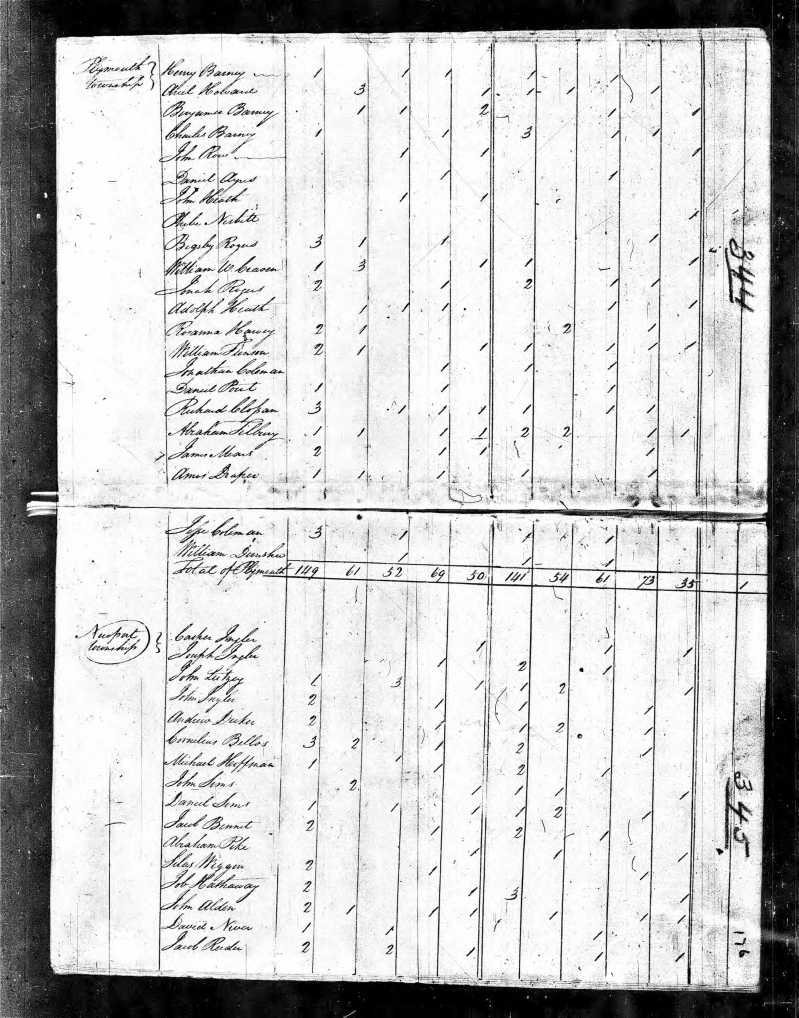 Plymouth township } Henry Barney 1 1 1 1 1
Ariel Holvard 3 1 1 1 1 1
Benjamin Barney 1 1 2 1 1
Charles Barney 1 1 3 1 1
John Row 1 1 1
Daniel Ayres 1 1
John Heath 1 1
Phebe Nesbitt 1
Bigsby Rogers 3 1 1 1 1
William W Craven 1 3 1 1 1 1
Jonah Rogers 2 1 2 1 1
Adolph Heath 1 1 1 1 1
Rosanna Harvey 2 1 2 1 1
William 2 1 1 1 1 1 1
Jonathan Coleman 1 1 1
Daniel 1 1 1
Richard Clopan 3 1 1 1 1 1 1
Abraham Tilbury 1 1 1 1 2 2 1 1
James Mears 2 1 1 1
Amos Draper 1 1 1 1 1 1
344
Jesse Coleman 3 1 1 1
William 1 1 1
Total of Plymouth 149 61 52 69 50 141 54 61 73 35 1
Newport township } Casper Ingler 1 1 1
Joseph Ingler 1 2 1
John Lutzey 1 3 1 1 2 1
John Ingler 2 1 1 1
Andrew 2 1 1 2 1
Cornelius Bellos 3 2 1 2 1
Michael Hoffman 1 1 1 2 1
John Sims 2 1 1 1
Daniel Sims 1 1 1 1 2 1
Jacob Bennet 2 1 2 1
Abraham Pike 1 1 1
Silas Wiggin 2 1 1
Job Hathaway 2 1 3 1
John Alden 2 1 1 1 1 1 1
David Niver 1 1 1
Jacob Reeder 2 2 1 1 1
345
176